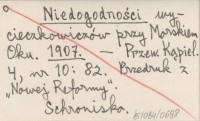 Niedogodności wy-
cieczkowiczów przy Morskiem
Oku. 1907. — Przem. Kąpiel.
4, nr 10: 82. Przedruk z
„Nowej Reformy".
Schroniska.